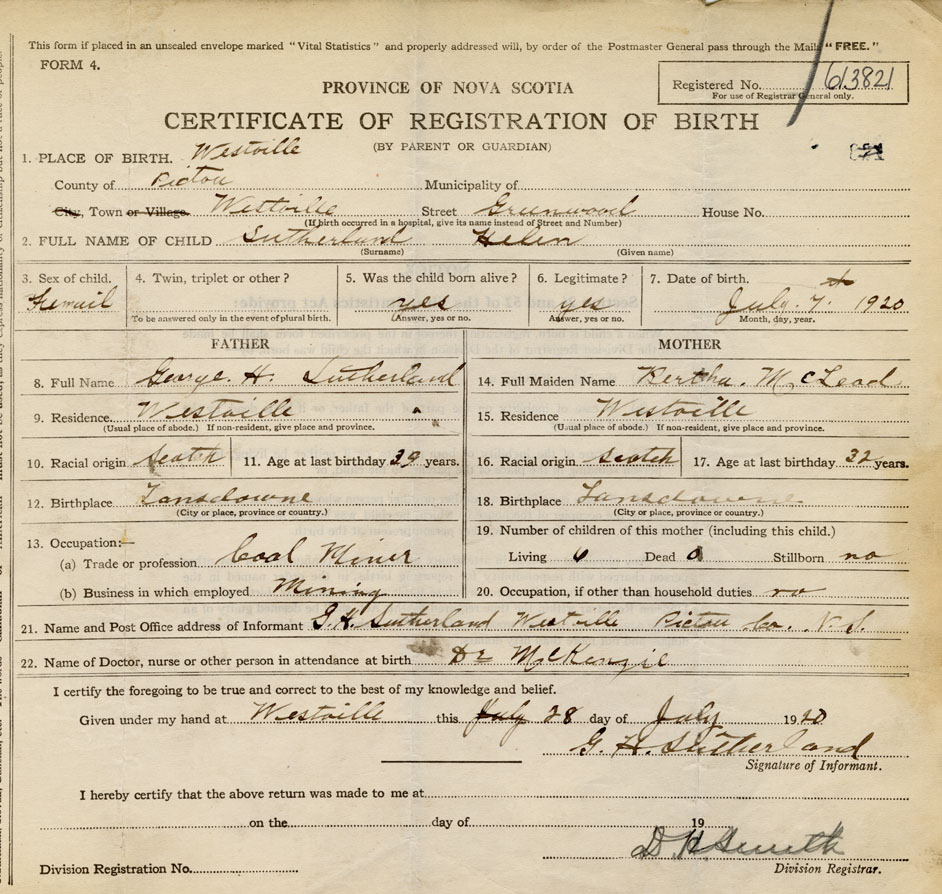 This form if placed in an unsealed envelope marked "Vital Statistics" and properly addressed will, by order of the Postmaster General pass through the Mail, "FREE."
FORM 4.
Registered No. 613821
For use of Registrar General only.
PROVINCE OF NOVA SCOTIA
CERTIFICATE OF REGISTRATION OF BIRTH
(BY PARENT OR GUARDIAN)
1. PLACE OF BIRTH. Westville
County of Pictou Municipality of
City, Town or Village. Westville Street Greenwood House No.
(If birth occurred in a hospital, give its name instead of Street and Number)
2. FULL NAME OF CHILD Sutherland Helen
(Surname) (Given name)
3. Sex of child. 4. Twin, triplet or other? 5. Was the child born alive? 6. Legitimate? 7. Date of birth.
Femail yes yes July 7th 1920
To be answered only in the event of plural birth. (Answer, yes or no. (Answer, yes or no. Month, day, year.
FATHER MOTHER
8. Full Name George. H. Sutherland 14. Full Maiden Name Bertha. McLead
9. Residence. Westville 15. Residence Westville
(Usual place of abode.) If non-resident, give place and province. (Usual place of abode.) If non-resident, give place and province.
10. Racial origin Scotch 11. Age at last birthday 39 years. 16. Racial origin Scotch 17. Age at last birthday 32 years.
12. Birthplace Lansdowne 18. Birthplace Lansdowne
(City or place, province or country.) (City or place, province or country.)
13. Occupation:— 19. Number of children of this mother (including this child.)
(a) Trade or profession Coal Miner Living 6 Dead 0 Stillborn no
(b) Business in which employed Mining 20. Occupation, if other than household duties. no
21. Name and Post Office address of Informant G.H. Sutherland Westville Pictou Co. N.S.
22. Name of Doctor, nurse or other person in attendance at birth Dr McKenzie
I certify the foregoing to be true and correct to the best of my knowledge and belief.
Given under my hand at Westville this July 28 day of July 1920
G. H. Sutherland
Signature of Informant.
I hereby certify that the above return was made to me at
on the day of 19
D H Smith
Division Registration No. Division Registrar.